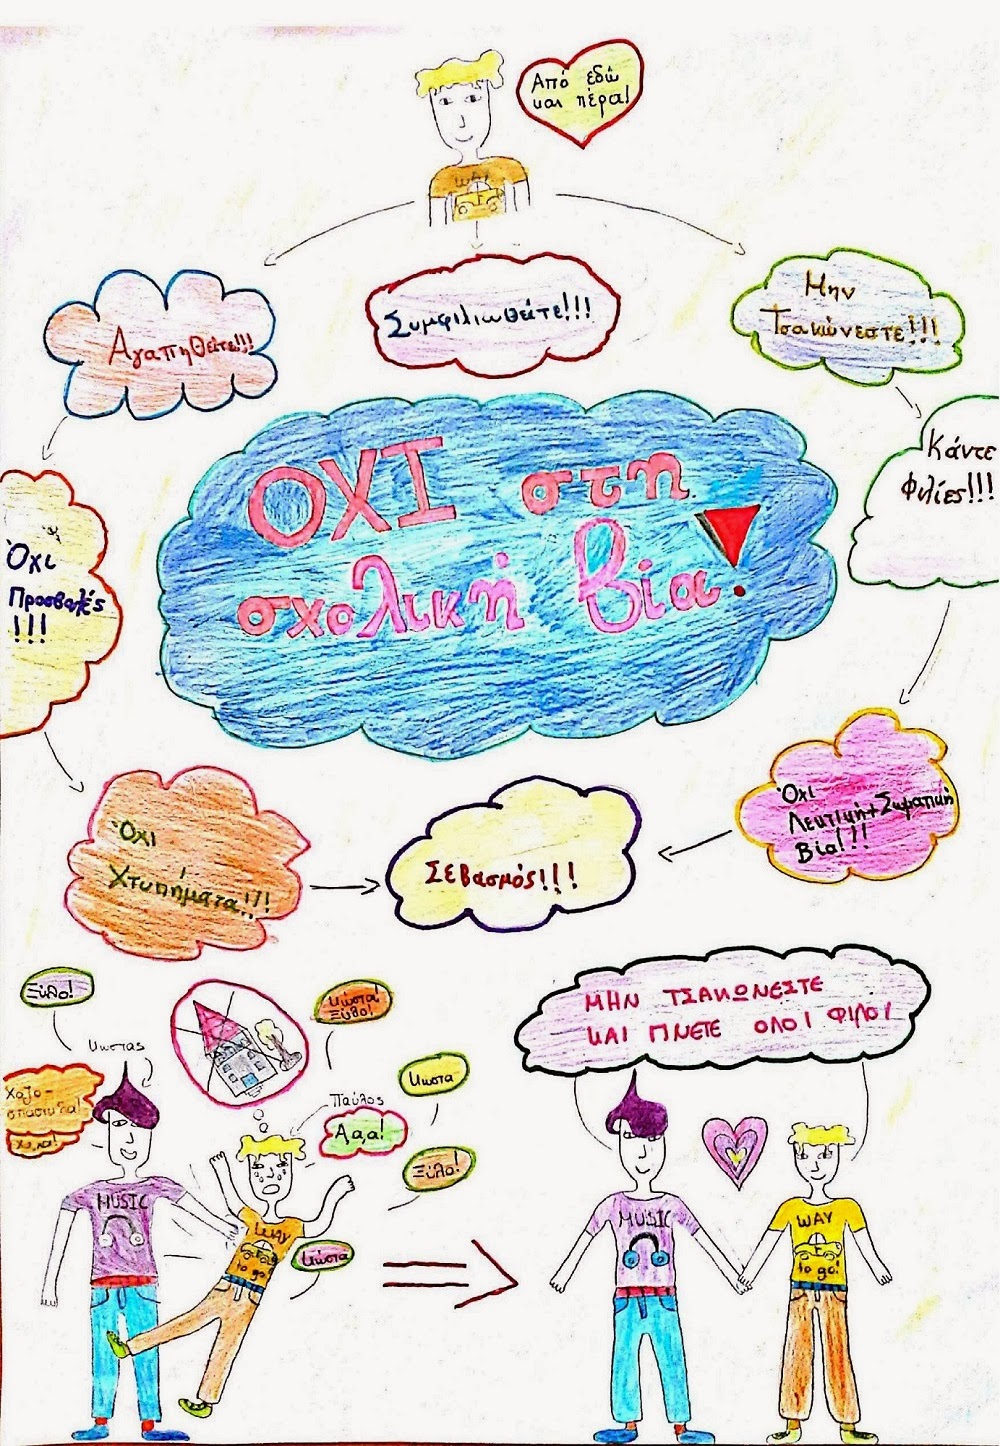 Από εδώ
και πέρα!
WAY
Αγαπηθείτε!!!
Συμφιλιωθείτε!!!
Μην
Τσακώνεστε!!!
Κάντε
Φιλίες!!!
ΟΧΙ στη
σχολική βία!
Όχι
Προσβολές
!!!
Όχι
Χτυπήματα!!!
Σεβασμός!!!
Όχι
Λεκτική+Σωματική
Βία!!!
Ξύλο!
Κώστας
Κώστα!
Ξύλο!
Κώστα
Παύλος
Α,α,α!
Ξύλο!
Κώστα
Χαζο-
χα,χα!
MUSIC
WAY
to go!
ΜΗΝ ΤΣΑΚΩΝΕΣΤΕ
ΚΑΙ ΓΙΝΕΤΕ ΟΛΟΙ ΦΙΛΟΙ
MUSIC
WAY
to go!